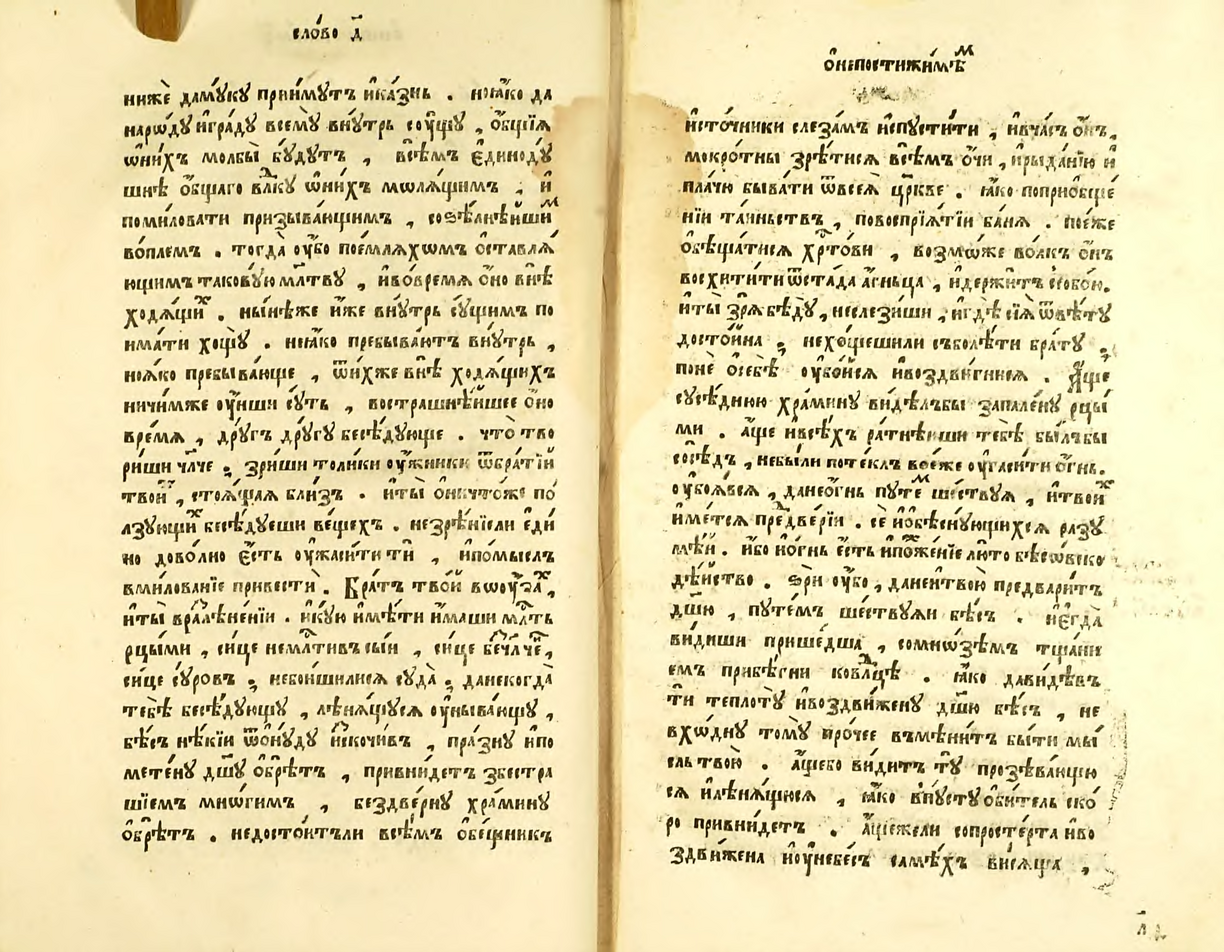 сло́во д҃
нижѐ дамꙋ́кꙋ прїи́мꙋтъ ика́знь . но ꙗ҆́ко да
наро́дꙋ и҆гра́дꙋ всемꙋ̀ внꙋ́трь сꙋ́щꙋ , о҆́бщїѧ
ѡ҆ни́хъ молбы̀ бꙋ́дꙋтъ , всѣ́мъ є҆диноdꙋ́
шнѣ о҆́бщаго вл҃кꙋ ѡ҆ни́хъ мѡлѧ́щимъ , и҆
помиловати призыва́ющимъ , соѕѣлнѣ́йшиⷨ
во́племъ . тогда̀ оу҆́бо пое́млѧхомъ ѡ҆ставлѧ́
ющимъ таковꙋ́ю мл҃твꙋ , и҆во́времѧ о҆́но внѣ̀
ходѧ́щиⷯ . ны́нѣже и҆́же внꙋ́трь сꙋ́щимъ по
има́ти хощꙋ̀ . не ꙗ҆́ко пребыва́ютъ внꙋ́трь ,
но ꙗ҆́ко пребыва́юще , ѿни́хже внѣ̀ ходѧ́щихъ
ничи́мже оу҆́ншн сꙋ́ть , вострашнѣ́йшее о҆́но
вре́мѧ , дрꙋ́гъ дрꙋ́гꙋ бесѣ́дꙋюще . что̀ тво
ри́ши чл҃че ; зри́ши толи́ки оу҆́жники ѿбра́тїй
твои́хъ , стоѧ́щаѧ бли́зъ . и҆ты̀ о҆ничто́же по́
лзꙋющиⷯ бесѣ́дꙋеши ве́щехъ . незрѣ́нїели є҆ди́
но дово́лно є҆́сть оу҆жаси́ти тѧ̀ , и҆по́мыслъ
вми́лованїе привестѝ . Бра́тъ тво́й вѡоу҆́заⷯ ,
и҆ты̀ врⸯлѣне́нїи . и҆кꙋ́ю и҆мѣ́ти и҆́маши мл҃ть
рцы́ми , си́це нем҃ативъ сы́й , си́це бе́чл҃че́ ,
си́це сꙋ́ровъ ; небои́шилисѧ сꙋда̀ ; данекогда̀
тебѣ̀ бесѣ́дꙋющꙋ , лѣнѧ́щꙋсѧ оу҆ныва́ющꙋ ,
бѣ́съ нѣ́кїи ѿо҆нꙋ́дꙋ и҆ско́чивъ , пра́знꙋ и҆по
мете́нꙋ дш҃ꙋ о҆брѣ́тъ , привни́детъ збестра́
шїемъ мно́гимъ , бездве́рнꙋ хра́минꙋ
о҆брѣ́тъ . недосто́итъли всѣ́мъ о҆бе́щникъ
ѡ҆непостижи́мѣⷨ
и҆сто́чники слеза́мъ и҆спꙋсти́ти , и҆вча́съ о҆́нъ ,
мокро́тны зрѣ́тисѧ всѣ́мъ о҆́чи , и҆рыда́нїю и҆
пла́чю быва́ти ѿвсеѧ̀ цр҃кве . ꙗ҆́ко поприо҆бще́
нїи та́иньствъ , повоспрїѧ́тїи ба́нѧ . пое҆́же
о҆бѣща́тисѧ хрⷭ҇то́ви , возмо́же во́лкъ о҆́нъ
восхити́ти ѿста́да а҆́гньца , и҆держи́тъ ѡ҆собо́ю .
и҆ты̀ зрѧ̀ бѣдꙋ̀ , неслези́ши , и҆гдѣ̀ сїѧ̀ ѿвѣ́тꙋ
досто́йна ; нехо́щешили съболѣ́ти бра́тꙋ ;
понѐ ѡ҆себѣ̀ оу҆бо́йсѧ и҆воздви́гнисѧ . А҆́ще
сꙋсѣ́днюю хра́минꙋ ви́дѣлъбы запале́нꙋ рцы́
ми . а҆́ще и҆всѣ́хъ ра́тнѣиши тебѣ̀ бы́лъбы
сосѣ́дъ , небы́ли поте́клъ во е҆́же оу҆гаси́ти о҆́гнь .
оу҆боѧ́всѧ , данео҆́гнь пꙋте́ⷨ ше́ствꙋѧ , и҆твои́ⷯ
и҆́метсѧ предве́рїи . сѐ и҆ѡ҆бѣснꙋ́ющихсѧ разꙋ
мѣ́й . и҆́бо и҆о҆́гнь є҆́сть и҆пⷪжже́нїе лю́то бѣсо́вско
дѣ́йство . зри̂ оу҆́бо , данеи҆твою̀ предвари́тъ
дш҃ю , пꙋте́мъ ше́ствꙋѧи бѣ́съ . и҆є҆гда̀
ви́диши прише́дша , сомно́зѣмъ тща́ни
емъ прибѣ́гни ковл҃цѣ . ꙗ҆́ко да ви́дѣвъ
ти̂ теплотꙋ̀ и҆воздви́женꙋ дш҃ю бѣ́съ , не
вхо́днꙋ томꙋ̀ про́чее въмѣни́тъ бы́ти мы́
сль твою̀ . а҆́щебо ви́дитъ тꙋ̀ прозѣва́ющꙋ
сѧ и҆лѣнѧ́щꙋюсѧ , ꙗ҆́ко впꙋ́стꙋ о҆би́тель ско́
ро привни́детъ . а҆́щежели сопросте́рта и҆во
здви́жена и҆оу҆небе́съ самѣ́хъ висѧ́ща ,